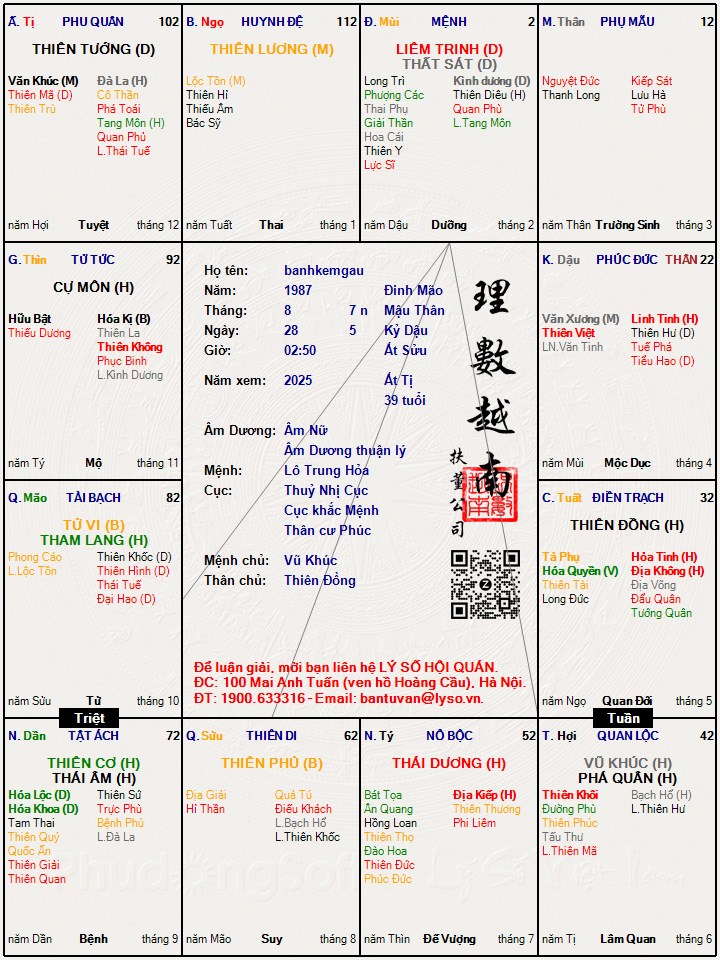 Ấ. Tị PHU QUÂN 102
THIÊN TƯỚNG (D)
Văn Khúc (M) Đà La (H)
Thiên Mã (D) Cô Thần
Thiên Trù Phá Toái
Tang Môn (H)
Quan Phủ
L.Thái Tuế
năm Hợi Tuyệt tháng 12
B. Ngọ HUYNH ĐỆ 112
THIÊN LƯƠNG (M)
Lộc Tồn (M)
Thiên Hỉ
Thiếu Âm
Bác Sỹ
năm Tuất Thai tháng 1
Đ. Mùi MỆNH 2
LIÊM TRINH (D)
THẤT SÁT (D)
Long Trì Kình dương (D)
Phượng Các Thiên Diêu (H)
Thai Phụ Quan Phù
Giải Thần L.Tang Môn
Hoa Cái
Thiên Y
Lực Sĩ
năm Dậu Dưỡng tháng 2
M. Thân PHỤ MẪU 12
Nguyệt Đức Kiếp Sát
Thanh Long Lưu Hà
Tử Phù
năm Thân Trường Sinh tháng 3
G. Thìn TỬ TỨC 92
CỰ MÔN (H)
Hữu Bật Hóa Kị (B)
Thiếu Dương Thiên La
Thiên Không
Phục Binh
L.Kình Dương
năm Tý Mộ tháng 11
Họ tên: banhkemgau
Năm: 1987 Đinh Mão
Tháng: 8 7 n Mậu Thân
Ngày: 28 5 Kỷ Dậu
Giờ: 02:50 Ất Sửu
Năm xem: 2025 Ất Tị
39 tuổi
Âm Dương: Âm Nữ
Âm Dương thuận lý
Mệnh: Lô Trung Hỏa
Cục: Thuỷ Nhị Cục
Cục khắc Mệnh
Thân cư Phúc
Mệnh chủ: Vũ Khúc
Thân chủ: Thiên Đồng
理數越南
扶董公司
Để luận giải, mời bạn liên hệ LÝ SỐ HỘI QUÁN.
ĐC: 100 Mai Anh Tuấn (ven hồ Hoàng Cầu), Hà Nội.
ĐT: 1900.633316 - Email: bantuvan@lyso.vn.
K. Dậu PHÚC ĐỨC THÂN 22
Văn Xương (M) Linh Tinh (H)
Thiên Việt Thiên Hư (D)
LN.Văn Tinh Tuế Phá
Tiểu Hao (D)
năm Mùi Mộc Dục tháng 4
Q. Mão TÀI BẠCH 82
TỬ VI (B)
THAM LANG (H)
Phong Cáo Thiên Khốc (D)
L.Lộc Tồn Thiên Hình (D)
Thái Tuế
Đại Hao (D)
năm Sửu Tử tháng 10
Triệt
C. Tuất ĐIỀN TRẠCH 32
THIÊN ĐỒNG (H)
Tả Phụ Hỏa Tinh (H)
Hóa Quyền (V) Địa Không (H)
Thiên Tài Địa Võng
Long Đức Đẩu Quân
Tướng Quân
năm Ngọ Quan Đới tháng 5
Tuần
N. Dần TẬT ÁCH 72
THIÊN CƠ (H)
THÁI ÂM (H)
Hóa Lộc (D) Thiên Sứ
Hóa Khoa (D) Trực Phù
Tam Thai Bệnh Phù
Thiên Quý L.Đà La
Quốc Ấn
Thiên Giải
Thiên Quan
năm Dần Bệnh tháng 9
Q. Sửu THIÊN DI 62
THIÊN PHỦ (B)
Địa Giải Quả Tú
Hỉ Thần Điếu Khách
L.Bạch Hổ
L.Thiên Khốc
năm Mão Suy tháng 8
N. Tý NÔ BỘC 52
THÁI DƯƠNG (H)
Bát Tọa Địa Kiếp (H)
Ân Quang Thiên Thương
Hồng Loan Phi Liêm
Thiên Thọ
Đào Hoa
Thiên Đức
Phúc Đức
năm Thìn Đế Vượng tháng 7
T. Hợi QUAN LỘC 42
VŨ KHÚC (H)
PHÁ QUÂN (H)
Thiên Khôi Bạch Hổ (H)
Đường Phù L.Thiên Hư
Thiên Phúc
Tấu Thư
L.Thiên Mã
năm Tị Lâm Quan tháng 6